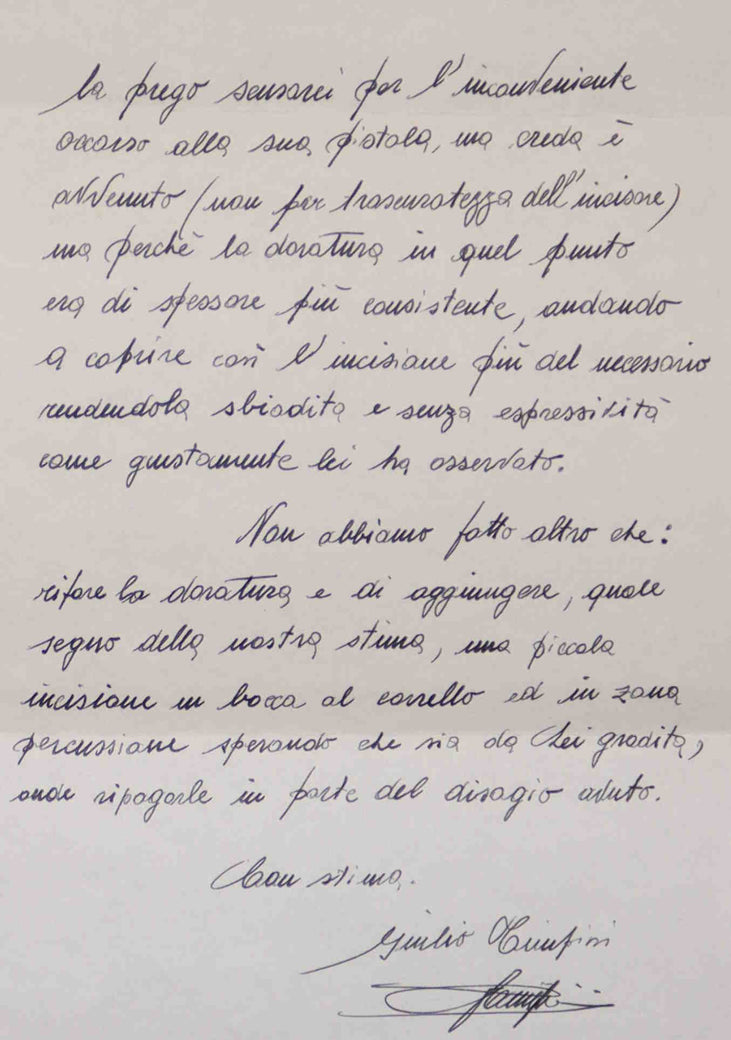 la prego scusarci per l'inconveniente
occorso alla sua pistola, ma creda è
avvenuto (non per trascuratezza dell'incisore)
ma perchè la doratura in quel punto
era di spessore più consistente, andando
a coprire così l'incisione più del necessario
rendendola sbiadita e senza espressività
come giustamente lei ha osservato.
Non abbiamo fatto altro che:
rifare la doratura e di aggiungere, quale
segno della nostra stima, una piccola
incisione in bocca al carrello ed in zona
percussione sperando che sia da Lei gradita,
onde ripagarle in parte del disagio avuto.
Con stima.
Giulio